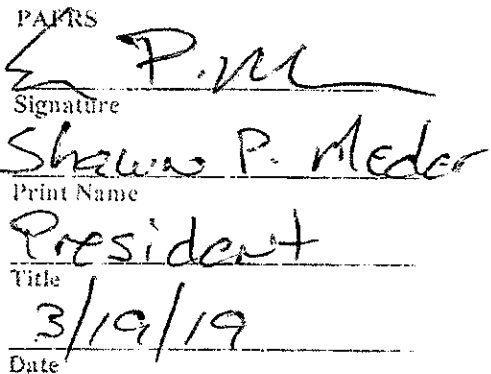 PAFRS
P.M
Signature
Shawn P. Meder
Print Name
President
Title
3/19/19
Date